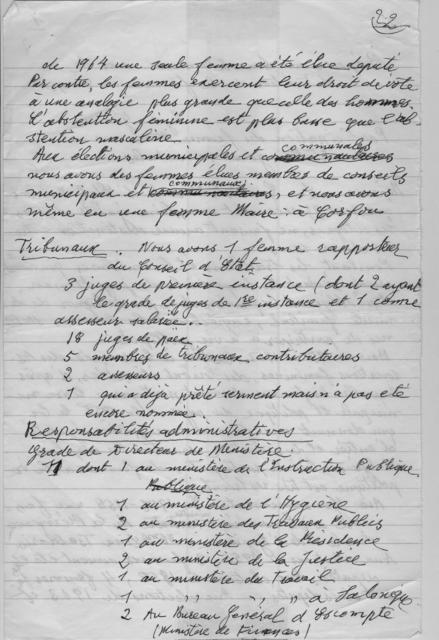 22
de 1964 une seule femme a été élue deputé
Par contre, les femmes exercent leur droit de vote
à une analogie plus grande que celle des hommes.
L'abstention féminine est plus basse que l'ab-
stention masculine
Aux élections municipales et communales
nous avons des femmes élues membres de conseils
municipaux et communaux, et nous avons
même eu une femme Maire : à Corfou
Tribunaux . Nous avons 1 femme rapporteur
du Conseil d'Etat
3 juges de première instance (dont 2 ayant
le grade de juges de 1re instance et 1 comme
assesseur salarié..
18 juges de paix
5 membres de tribunaux contributaires
2 assesseurs
1 qui a déjà prêté serment mais n'a pas eté
encore nommée.
Responsabilités administratives
Grade de Directeur de Ministère.
11 dont 1 au ministère de l'Instruction Publique
Publique
1 au ministère de l'Hygiène
2 au ministère des Travaux Publics
1 au ministère de la Présidence
2 au ministère de la Justice
1 au ministère du Travail
1 ,, ,, ,, à Salonique
2 Au Bureau Général d'Escompte
(Ministère de Finances)